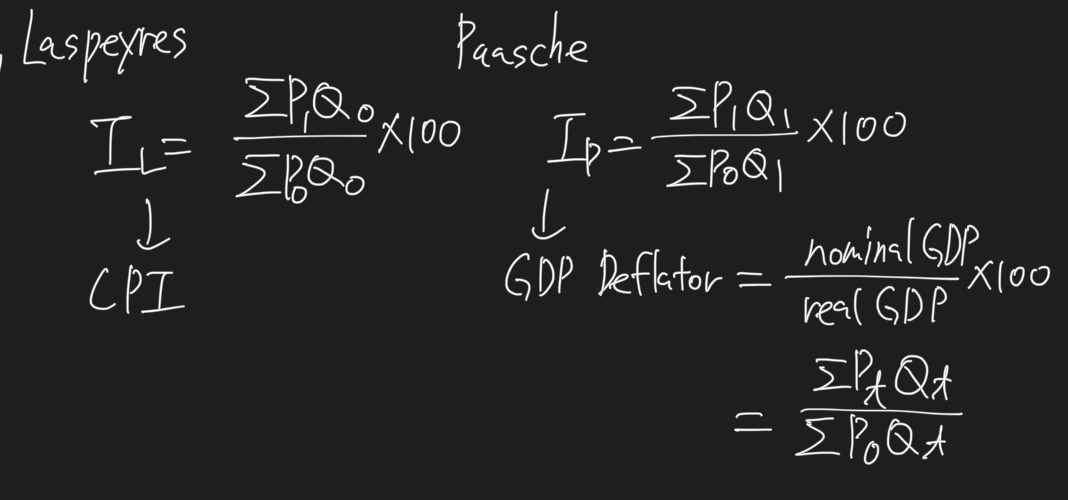 , Laspeyres
I_L = ΣP₁Q₀ / ΣP₀Q₀ ×100
↓
CPI
Paasche
I_P = ΣP₁Q₁ / ΣP₀Q₁ ×100
↓
GDP Deflator = nominal GDP / real GDP ×100
= ΣP_tQ_t / ΣP₀Q_t